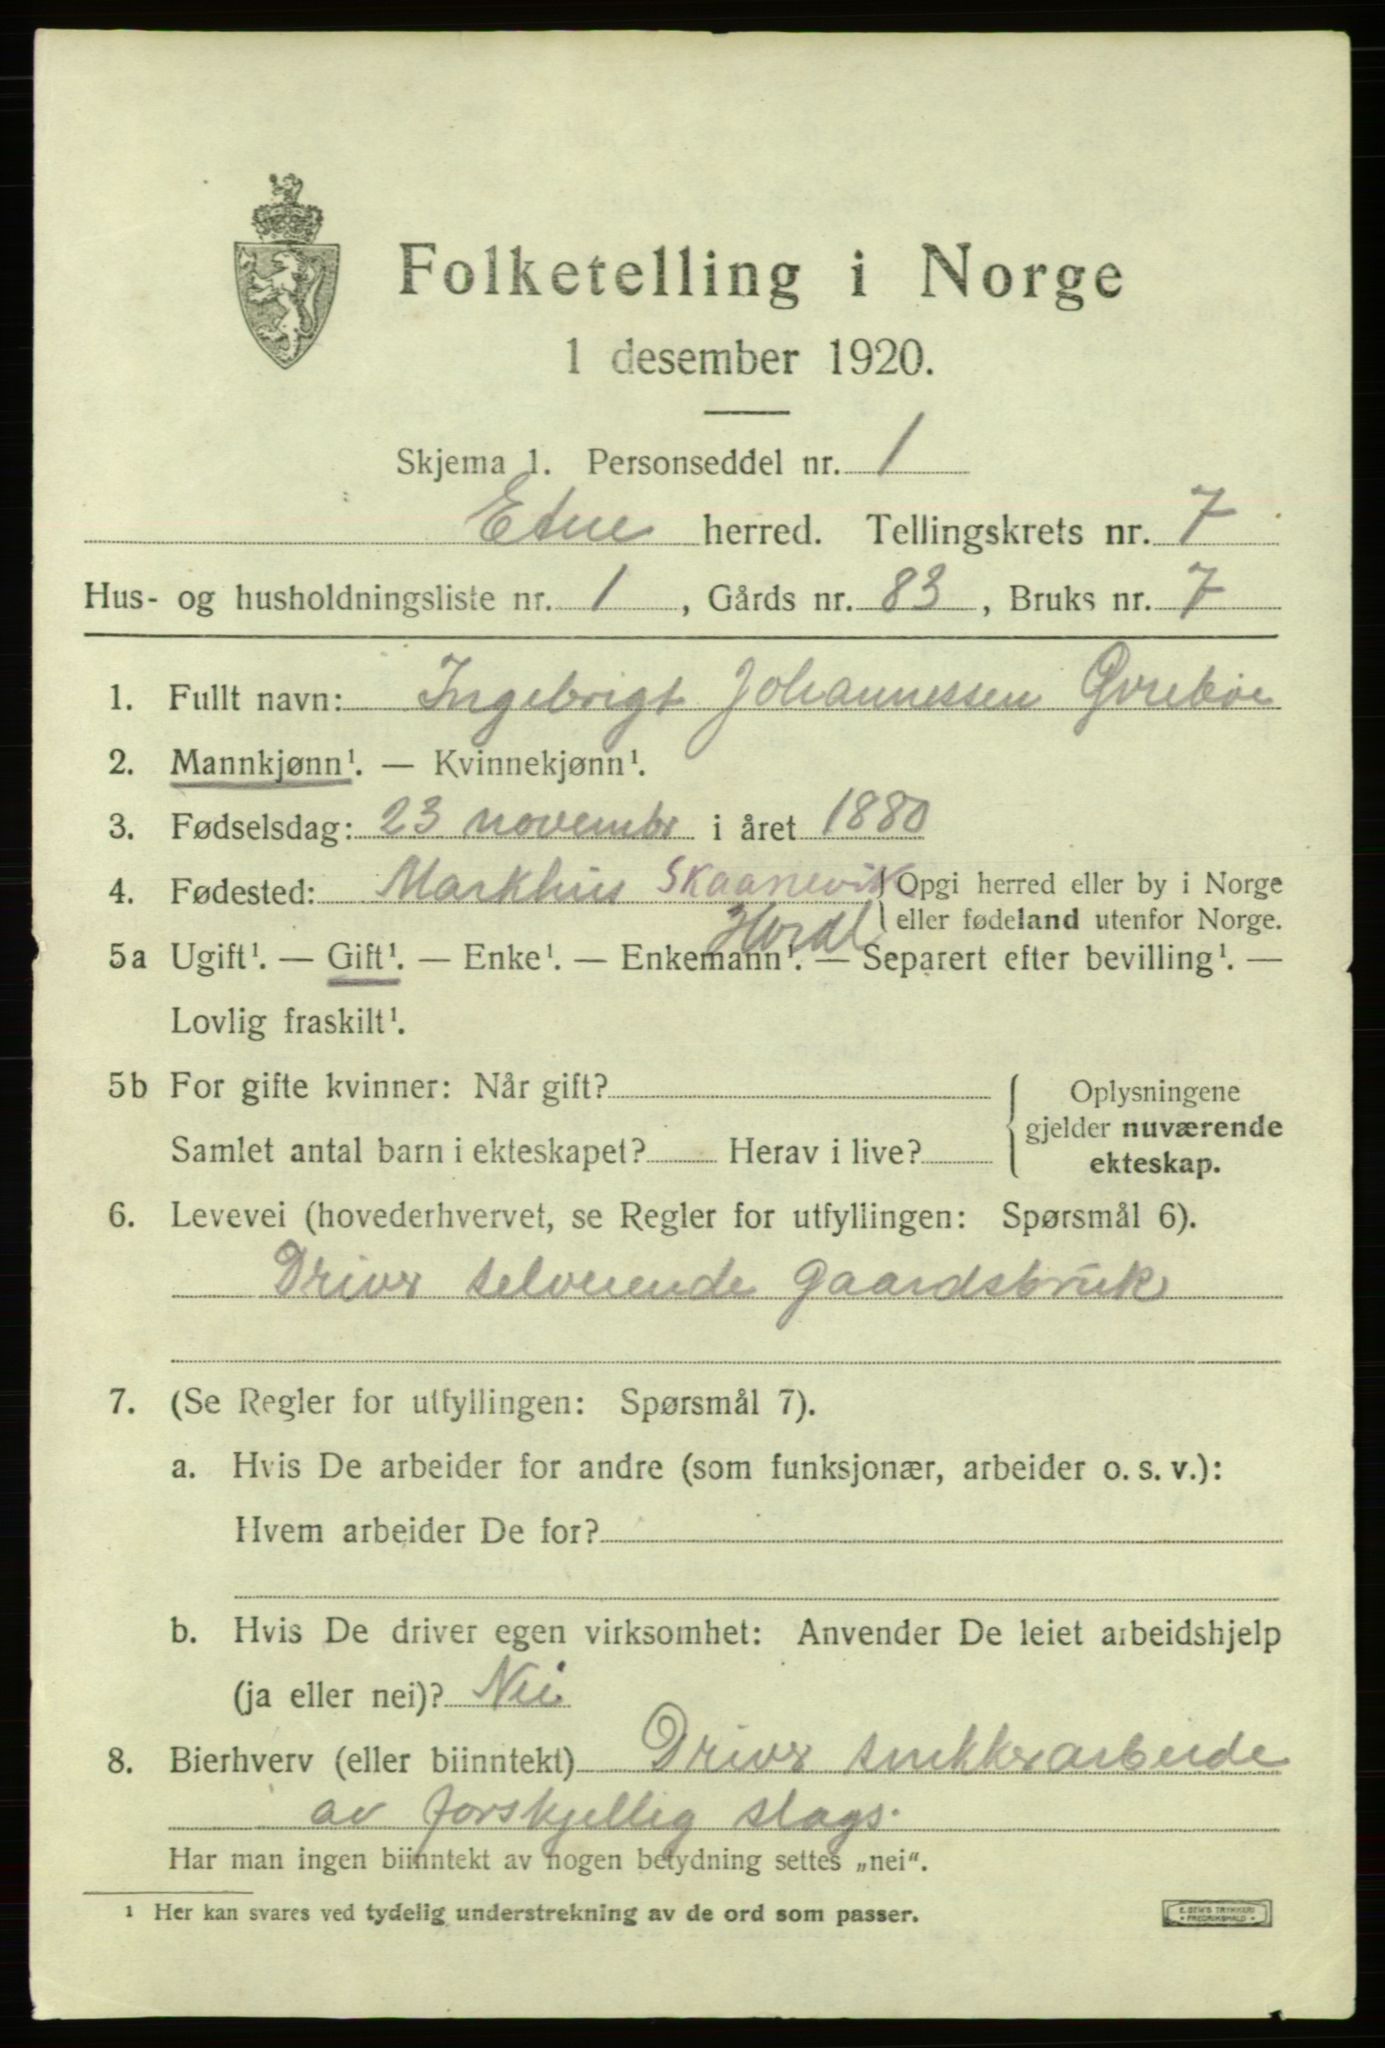 Folketelling i Norge
1 desember 1920.
Skjema 1. Personseddel nr. 1
Etne herred. Tellingskrets nr. 7
Hus- og husholdningsliste nr. 1, Gårds nr. 83, Bruks nr. 7
1. Fullt navn: Ingebrigt Johannessen Grrebøe
2. Mannkjønn¹. — Kvinnekjønn¹.
3. Fødselsdag: 23 novembr i året 1880
4. Fødested: Markhus Skaanevik } Opgi herred eller by i Norge
Hordl eller fødeland utenfor Norge.
5a Ugift¹. — Gift¹. — Enke¹. — Enkemann¹. — Separert efter bevilling¹. —
Lovlig fraskilt¹.
5b For gifte kvinner: Når gift? { Oplysningene
gjelder nuværende
Samlet antal barn i ekteskapet? Herav i live? ekteskap.
6. Levevei (hovederhvervet, se Regler for utfyllingen: Spørsmål 6).
Drivr selveiende gaardsbruk
7. (Se Regler for utfyllingen: Spørsmål 7).
a. Hvis De arbeider for andre (som funksjonær, arbeider o. s. v.):
Hvem arbeider De for?
b. Hvis De driver egen virksomhet: Anvender De leiet arbeidshjelp
(ja eller nei)? Nei
8. Bierhverv (eller biinntekt) Drivr snekkrarbeide
av forskjellig slags.
Har man ingen biinntekt av nogen betydning settes „nei“.
¹ Her kan svares ved tydelig understrekning av de ord som passer.